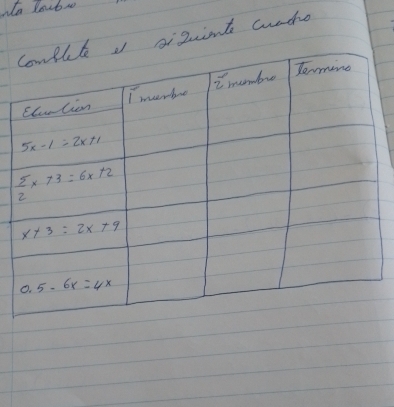 Complete el siguiente cuadro
Ecuation 1 miembro 2 miembro termino
5x-1=2x+1
5/2 x +3=6x+2
x+3=2x+9
0.5-6x=4x